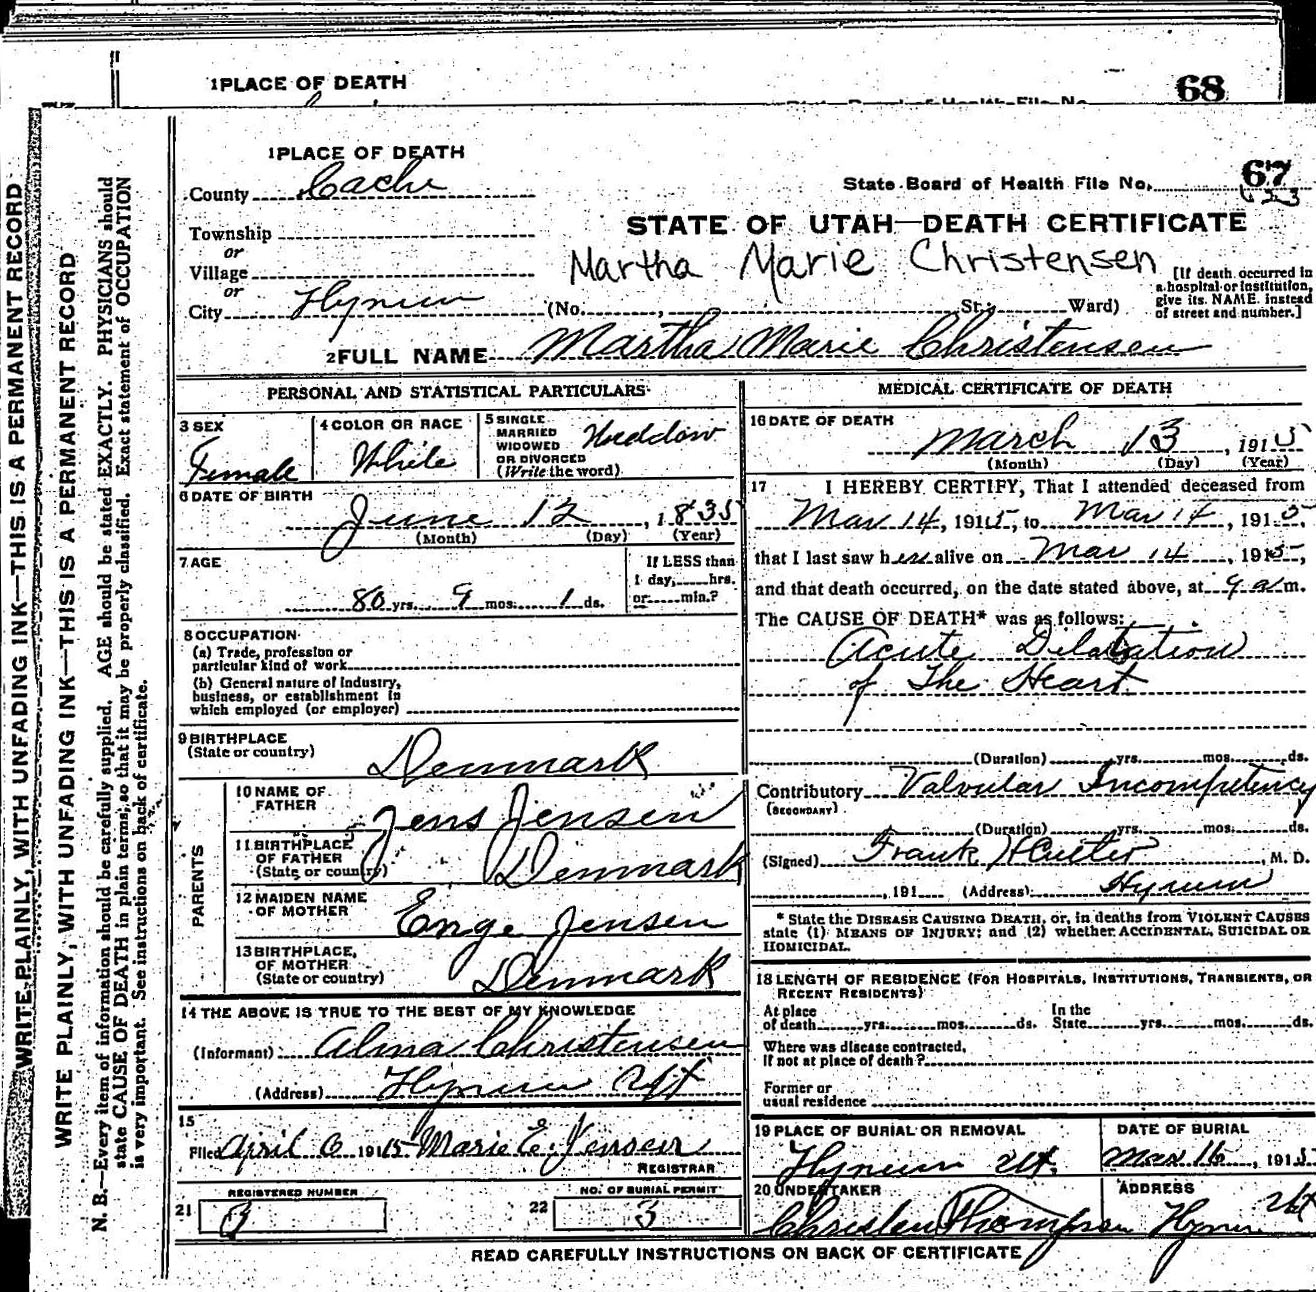 1 PLACE OF DEATH
68
State Board of Health File No.
WRITE PLAINLY, WITH UNFADING INK—THIS IS A PERMANENT RECORD
WRITE PLAINLY, WITH UNFADING INK—THIS IS A PERMANENT RECORD
N. B.—Every item of information should be carefully supplied. AGE should be stated EXACTLY. PHYSICIANS should
state CAUSE OF DEATH in plain terms, so that it may be properly classified. Exact statement of OCCUPATION
is very important. See instructions on back of certificate.
1 PLACE OF DEATH
County Cache
State Board of Health File No. 67
STATE OF UTAH—DEATH CERTIFICATE
Township
or
Village
or
City Hyrum
Martha Marie Christensen
(No. , St.; Ward)
[If death occurred in
a hospital or institution,
give its NAME instead
of street and number.]
2 FULL NAME Martha Marie Christensen
PERSONAL AND STATISTICAL PARTICULARS
3 SEX
Female
4 COLOR OR RACE
White
5 SINGLE
MARRIED
WIDOWED
OR DIVORCED
(Write the word)
Widdow
6 DATE OF BIRTH
June 12, 1835
(Month) (Day) (Year)
7 AGE
80 yrs. 9 mos. 1 ds.
If LESS than
1 day, hrs.
or min.?
8 OCCUPATION
(a) Trade, profession or
particular kind of work
(b) General nature of Industry,
business, or establishment in
which employed (or employer)
9 BIRTHPLACE
(State or country)
Denmark
PARENTS
10 NAME OF
FATHER
Jens Jensen
11 BIRTHPLACE
OF FATHER
(State or country)
Denmark
12 MAIDEN NAME
OF MOTHER
Enge Jensen
13 BIRTHPLACE
OF MOTHER
(State or country)
Denmark
14 THE ABOVE IS TRUE TO THE BEST OF MY KNOWLEDGE
(Informant) Alma Christensen
(Address) Hyrum Ut
15
Filed April 6 1915 Marie E. Jensen
REGISTRAR
REGISTERED NUMBER
21 3
NO. OF BURIAL PERMIT
22 3
MEDICAL CERTIFICATE OF DEATH
16 DATE OF DEATH
March 13, 1915
(Month) (Day) (Year)
17 I HEREBY CERTIFY, That I attended deceased from
Mar 14, 1915, to Mar 14, 1915,
that I last saw her alive on Mar 14, 1915,
and that death occurred, on the date stated above, at 9 a m.
The CAUSE OF DEATH* was as follows:
Acute Dilatation
of The Heart
(Duration) yrs. mos. ds.
Contributory Valvular Incompetency
(SECONDARY)
(Duration) yrs. mos. ds.
(Signed) Frank , M. D.
, 191 (Address) Hyrum
* State the DISEASE CAUSING DEATH, or, in deaths from VIOLENT CAUSES
state (1) MEANS OF INJURY; and (2) whether ACCIDENTAL, SUICIDAL OR
HOMICIDAL.
18 LENGTH OF RESIDENCE (FOR HOSPITALS, INSTITUTIONS, TRANSIENTS, OR
RECENT RESIDENTS)
At place
of death yrs. mos. ds.
In the
State yrs. mos. ds.
Where was disease contracted,
If not at place of death?
Former or
usual residence
19 PLACE OF BURIAL OR REMOVAL
Hyrum Ut.
DATE OF BURIAL
Mar 16, 1915
20 UNDERTAKER
Christen Thompson
ADDRESS
Hyrum Ut
READ CAREFULLY INSTRUCTIONS ON BACK OF CERTIFICATE